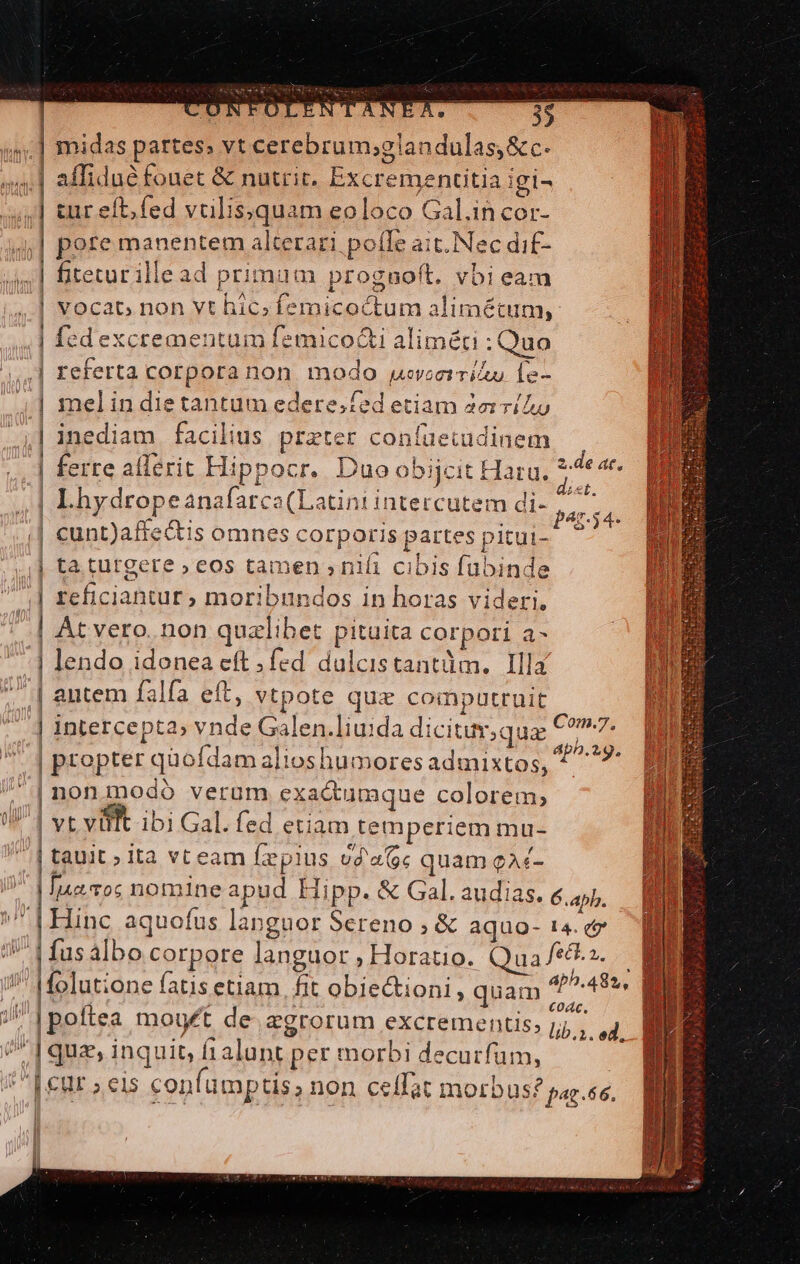 CONFOLENTANEA. 35
midas partes, vt cerebrum,glandulas,&c.
assiduè fouet & nutrit. Excrementitia igi-
tur est,sed vtilis,quam eo loco Gal.in cor-
pore manentem alterari posse ait. Nec dif-
fitetur ille ad primum prognost. vbi eam
vocat, non vt hîc, semicoctum alimētum,
sed excrementum semicocti alimēti : Quo
referta corpora non modo μονοσιτίῃν se-
mel in die tantum edere,sed etiam ἀσιτίῃν
inediam facilius præter consuetudinem
ferre asserit Hippocr. Duo obijcit Haru.
2. de ac.
diæt.
pag. 54.
I. hydrope anasarca (Latini intercutem di-
cunt)affectis omnes corporis partes pitui-
ta turgere , eos tamen , nisi cibis subinde
reficiantur , moribundos in horas videri.
At vero non quælibet pituita corpori a-
lendo idonea est , sed dulcis tantùm. Illa
autem salsa est, vtpote quæ computruit
intercepta, vnde Galen.liuida dicitur,quæ
Com.7.
aph.29.
propter quosdam alios humores admixtos,
non modò verum exactumque colorem,
vt vult ibi Gal. sed etiam temperiem mu-
tauit , ita vt eam sæpius ὕδατος quam φλέ-
γματος nomine apud Hipp. & Gal. audias.
6. aph.
14. &
sect. 2.
aph. 482,
coac.
lib. 2. ed.
pag. 66.
Hinc aquosus languor Sereno , & aquo-
sus albo corpore languor , Horatio. Qua
solutione satis etiam fit obiectioni , quam
postea mouet de ægrorum excrementis,
quæ, inquit, si alunt per morbi decursum,
cur , eis consumptis, non cessat morbus?